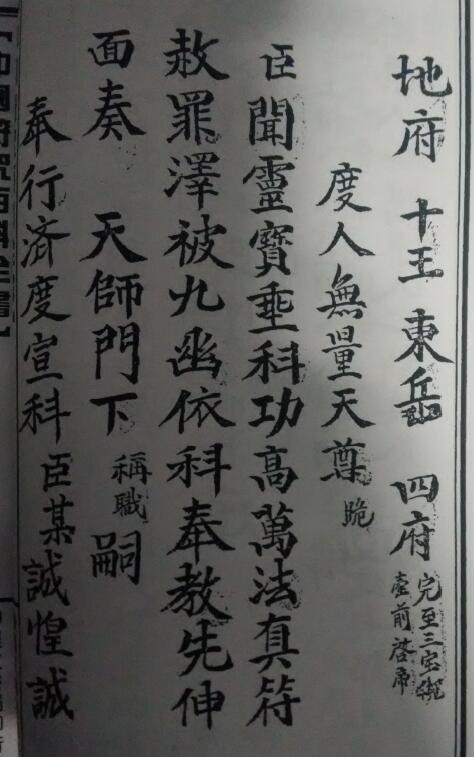 地府 十王 東岳 四府 完至三宝
臺前啓
度人無量天尊 跪
臣聞靈寶垂科功高萬法真符
赦罪澤被九幽依科奉教先伸
面奏 天師門下 稱職 嗣
奉行済度宣科 臣某誠惶誠